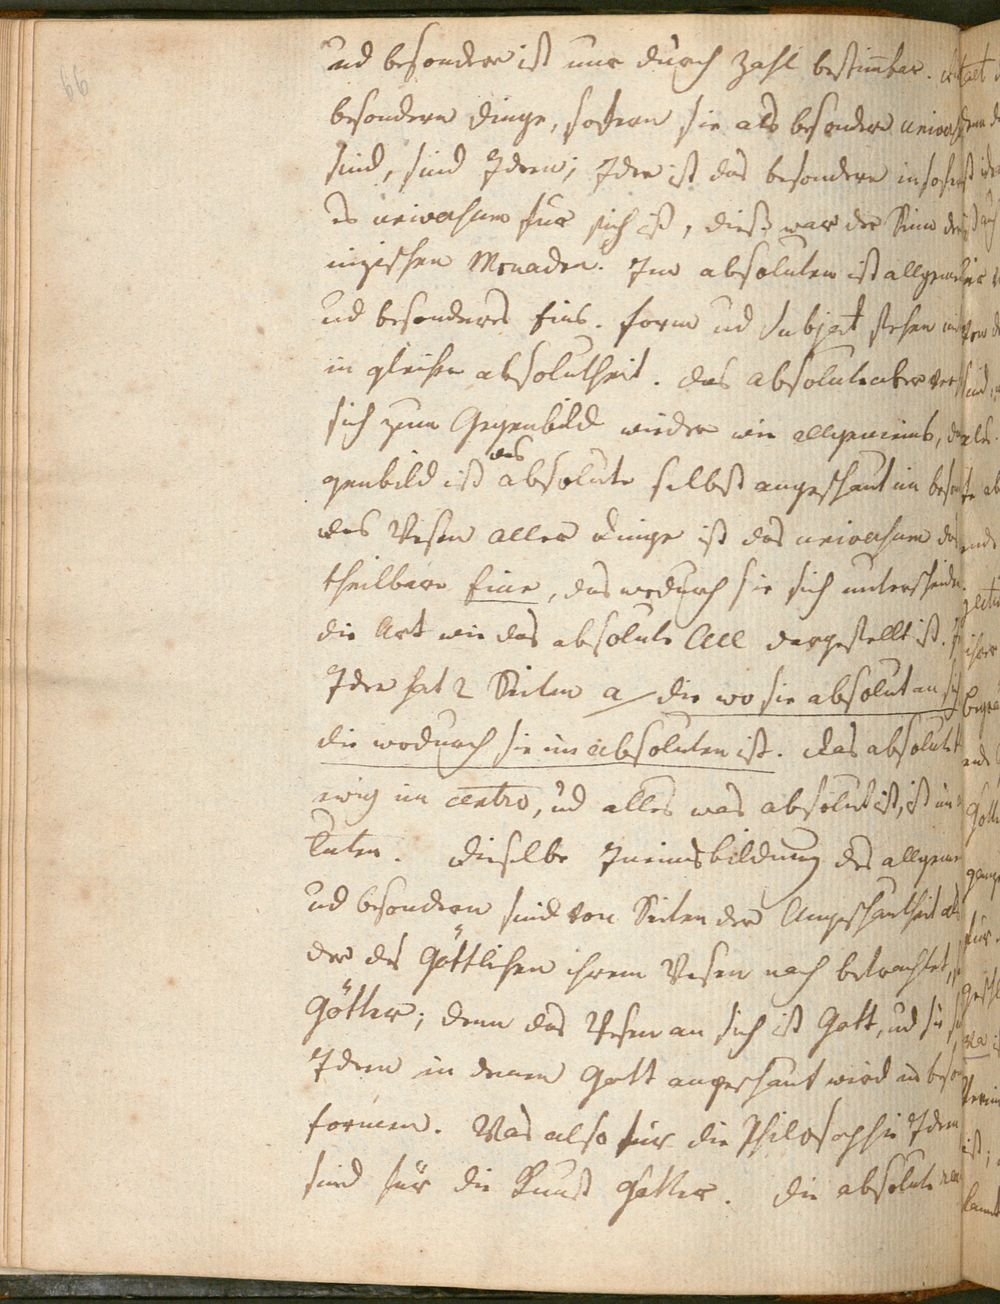 66
ud besondere ist nur durch Zahl bestimbar. die
besondern Dinge, sofern sie als besondere univers
sind, sind Ideen; Idee ist das besondere insofern
es universum für sich ist, dieß war der Sinn der
nizischen Monaden. Im absoluten ist allgemein
ud besonderes Eins. Form ud Subject stehen
in gleicher absolutheit. das absolute aber
sich zum Gegenbild wieder wie allgemeines, das
genbild ist das absolute selbst angeschaut im beson
das Wesen aller Dinge ist das universum das
theilbare Eine, das wodurch sie sich unterscheiden
die Art wie das absolute All dargestellt ist.
Idee hat 2 Seiten a/ die wo sie absolut an sich
die wodurch sie im absoluten ist. das absolute
ewig im centro, ud alles was absolut ist, ist im
luten. dieselbe Ineinsbildung des allgemei
ud besondern sind von Seiten der Angeschautheit als
der des Göttlichen ihrem Wesen nach betrachtet,
Götter; denn das Wesen an sich ist Gott, ud sie
Ideen in denen Gott angeschaut wird in beson
formen. Was also für die Philosophie Ideen
sind für die Kunst Götter. die absolute